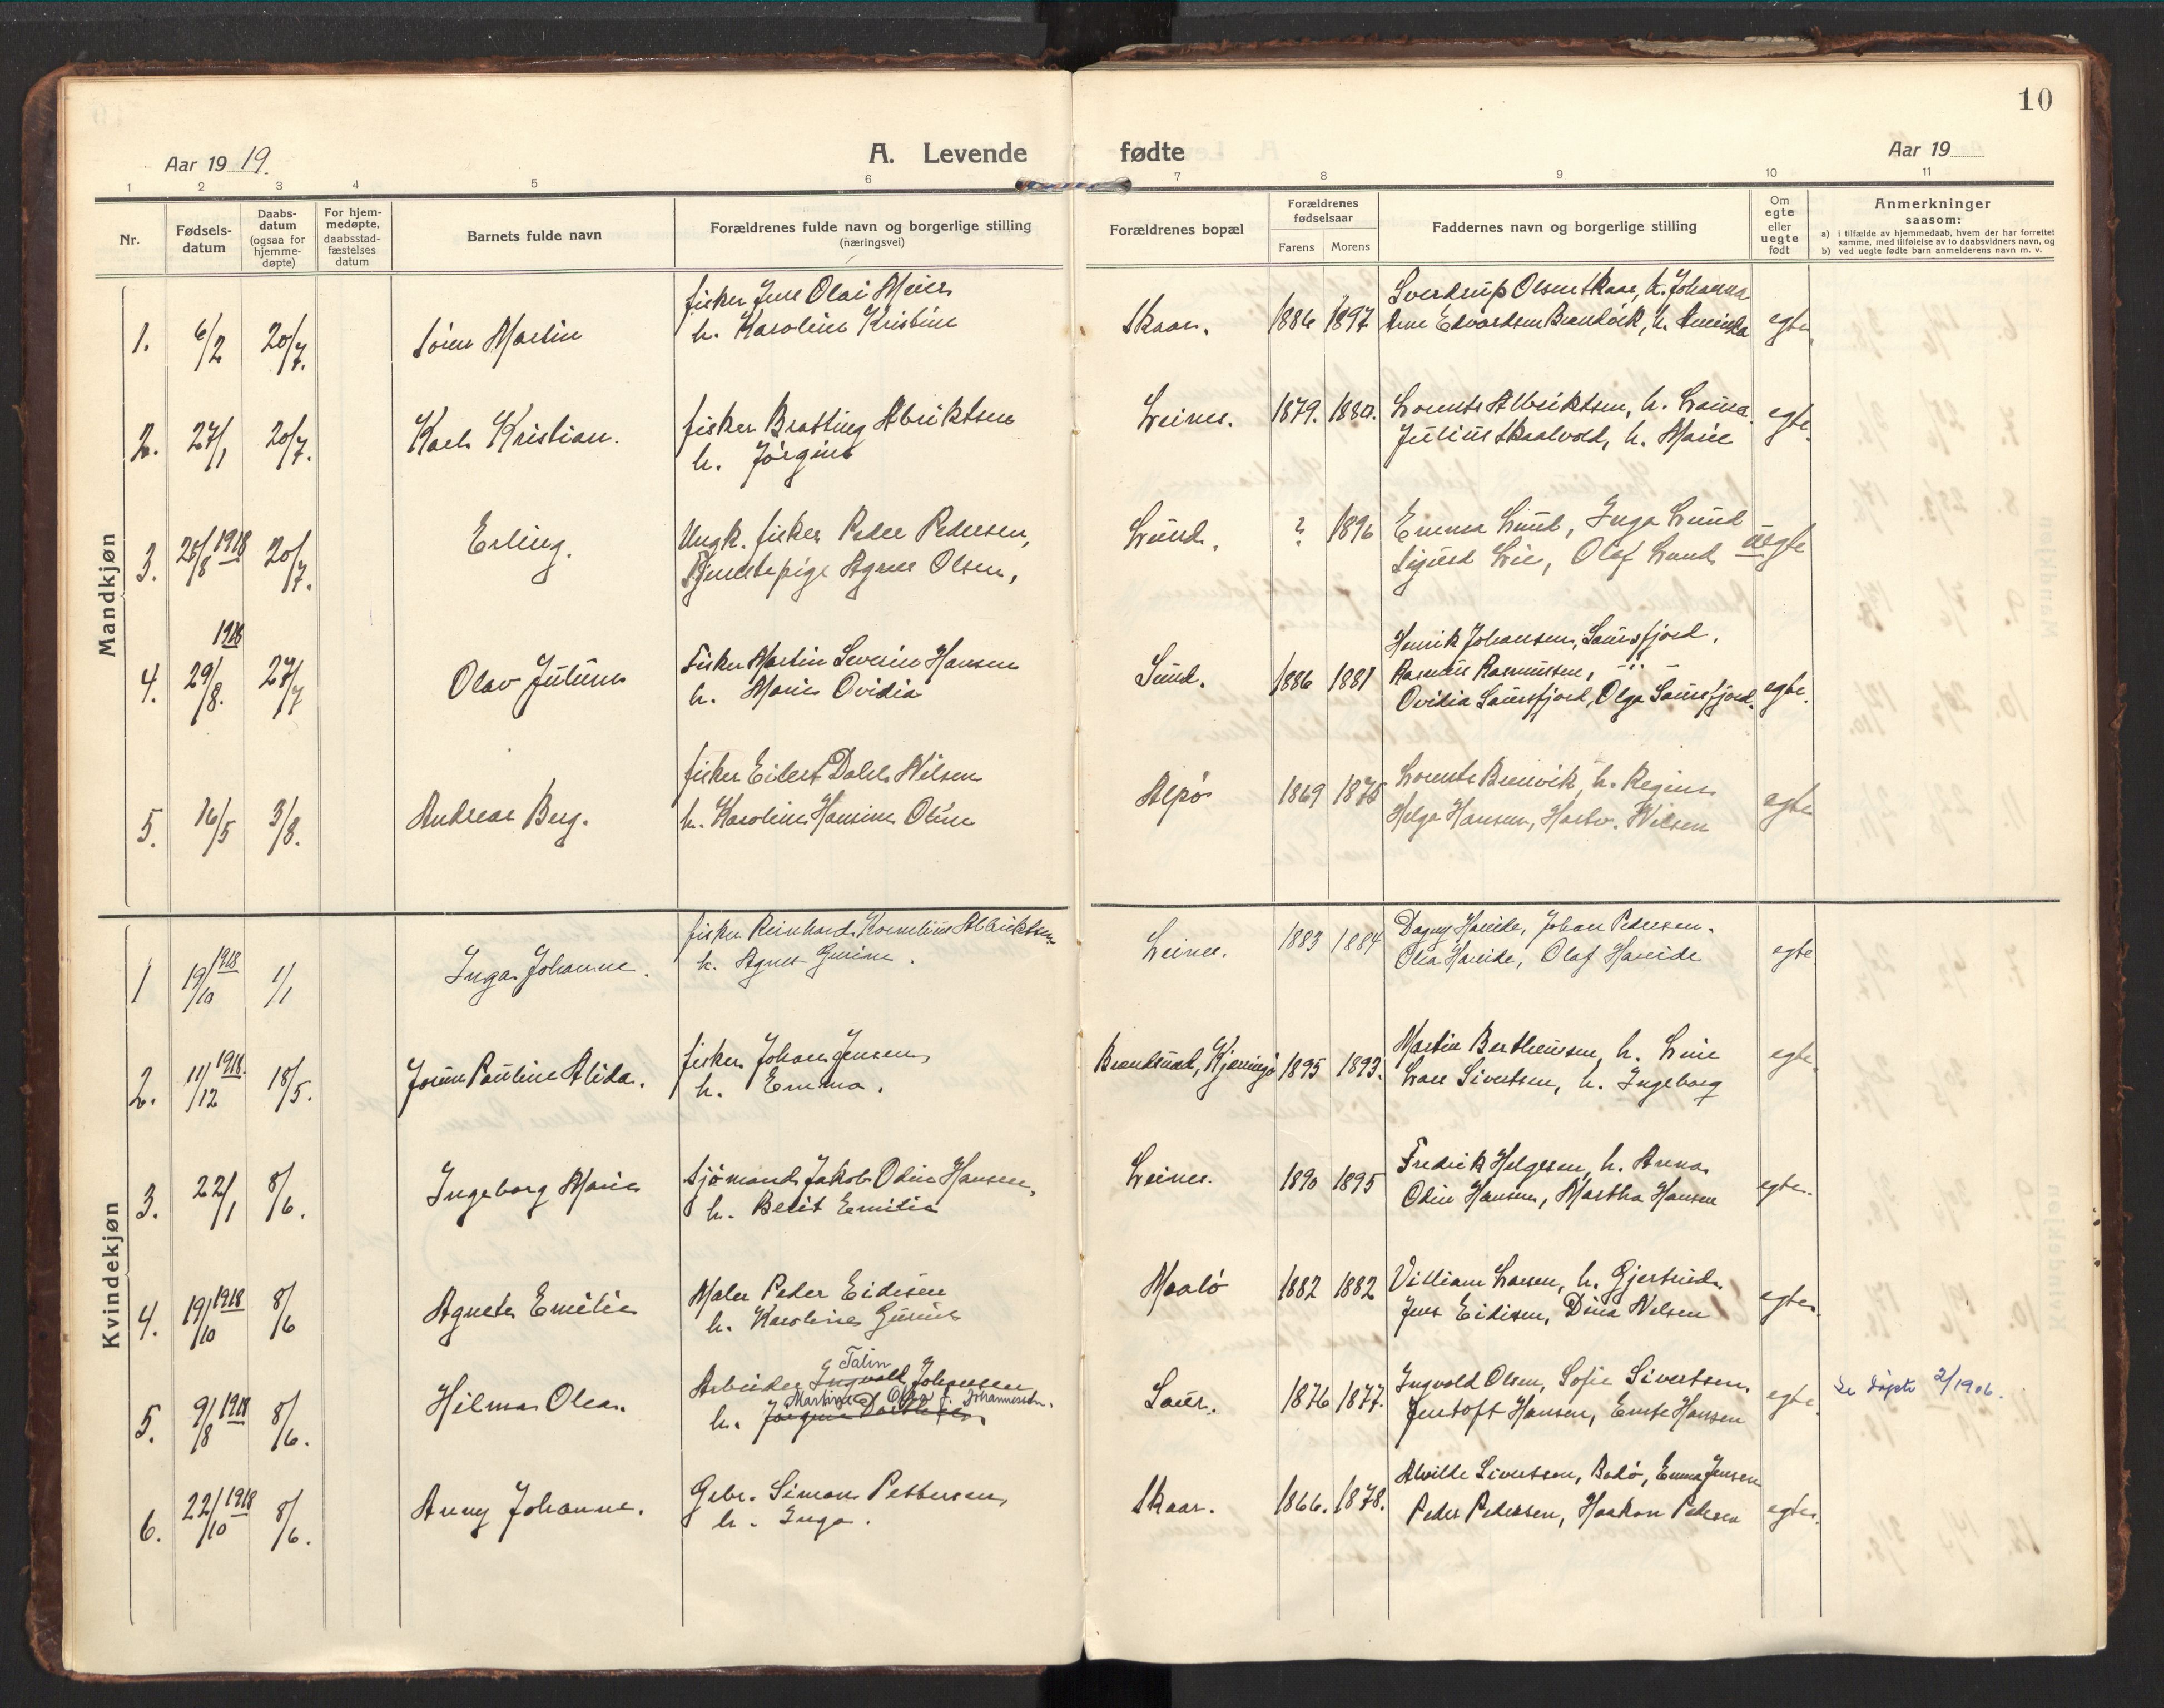 10
Aar 19 19.
A. Levende fødte
Aar 19
1 2 3 4 5 6 7 8 9 10 11
Nr.
Fødsels-
datum
Daabs-
datum
(ogsaa for
hjemme-
døpte)
For hjem-
medøpte,
daabsstad-
fæstelses
datum
Barnets fulde navn
Forældrenes fulde navn og borgerlige stilling
(næringsvei)
Forældrenes bopæl
Forældrenes
fødselsaar
Farens Morens
Faddernes navn og borgerlige stilling
Om
egte
eller
uegte
født
Anmerkninger
saasom:
a) i tilfælde av hjemmedaab, hvem der har forrettet
samme, med tilføielse av to daabsvidners navn, og
b) ved uegte fødte barn anmelderens navn m. v.
Mandkjøn
fisker Jens Olai Meier Sverdrup Olsen Skaar, h. Johanna
1. 6/2 20/7. Sören Martin h. Karoline Kristine Skaar. 1886 1897 Arne Edvardsen Brandvik, h. egte.
2. 27/1 20/7. Karl Kristian. fisker Bratting Albriktsen Leines. 1879. 1880. Lorents Albriktsen, h. Laura. egte.
h. Jörgine Julius Skaalvold, h. Marie
3. 25/8 1918 20/7. Erling. Ungk. fisker Peder Pedersen, Lund. ? 1896 Emma Lund, Inga Lund uegte
Tjenestepige Agnes Olsen, Sigurd Lie, Olaf Lund
1918 Henrik Johansen, Saursfjord.
4. 29/8. 27/7 Olav Julius Fisker Martin Severin Hansen Sund. 1886 1881 Rasmus Rasmussen, -"- egte.
h. Marie Ovidia Ovidia Saursfjord, Olga Saursfjord.
fisker Eilert Dahl Nilsen Lorents Brenvik, h. Regine
5. 16/5 3/8. Andreas Berg. h. Karoline Hansine Oline Alpö 1869 1875 Helga Hansen, Hartv. Nilsen egte
Kvindekjøn
fisker Reinhard Kornelius Albriktsen Dagny Hareide, Johan Pedersen.
1 19/10 1918 1/1 Inga Johanne. h. Agnes Gurine. Leines. 1883 1884 Olea Hareide, Olaf Hareide egte.
2. 11/12 1918. 18/5. Jorine Pauline Alida. fisker Johan Jensen, Brandsund, Kjerringö 1895 1893. Martin Bertheussen, h. Line egte.
h. Emma. Lars Sivertsen, h. Ingeborg
3. 22/1 8/6. Ingeborg Marie Sjömand Jakob Odin Hansen, Leines. 1890 1895 Fredrik Helgesen, h. Anna egte.
h. Berit Emilie Odin Hansen, Martha Hansen
4. 19/10 1918 8/6 Agnete Emilie Maler Peder Eidisen Maalö 1882 1882 Villiam Larsen, h. Gjertrud. egte.
h. Karoline Gurine Jens Eidisen, Dina Nilsen
Talin
5. 9/8 1918 8/6. Hilma Olea. Arbeider Ingvald Johansen Saur. 1876 1877. Ingvald Olsen, Sofie Sivertsen, egte. Se döpte 2/1906.
Martine Olea f. Johannesen.
h. Jentoft Hansen, Hansen
6. 22/10 1918 8/6. Anny Johanne. Gbr. Simon Pettersen, Skaar. 1866. 1878. Alvilde Sivertsen, Bodö, Emma Jensen egte.
h. Inga. Peder Pedersen, Haakon Pedersen